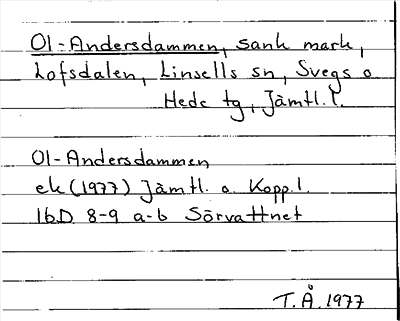 Ol-Andersdammen, sank mark,
Lofsdalen, Linsells sn, Svegs o
Hede tg, Jämtl. l.
Ol-Andersdammen
ek (1977) Jämtl. o. Kopp. l.
16D 8-9 a-b Sörvattnet
T.Å. 1977